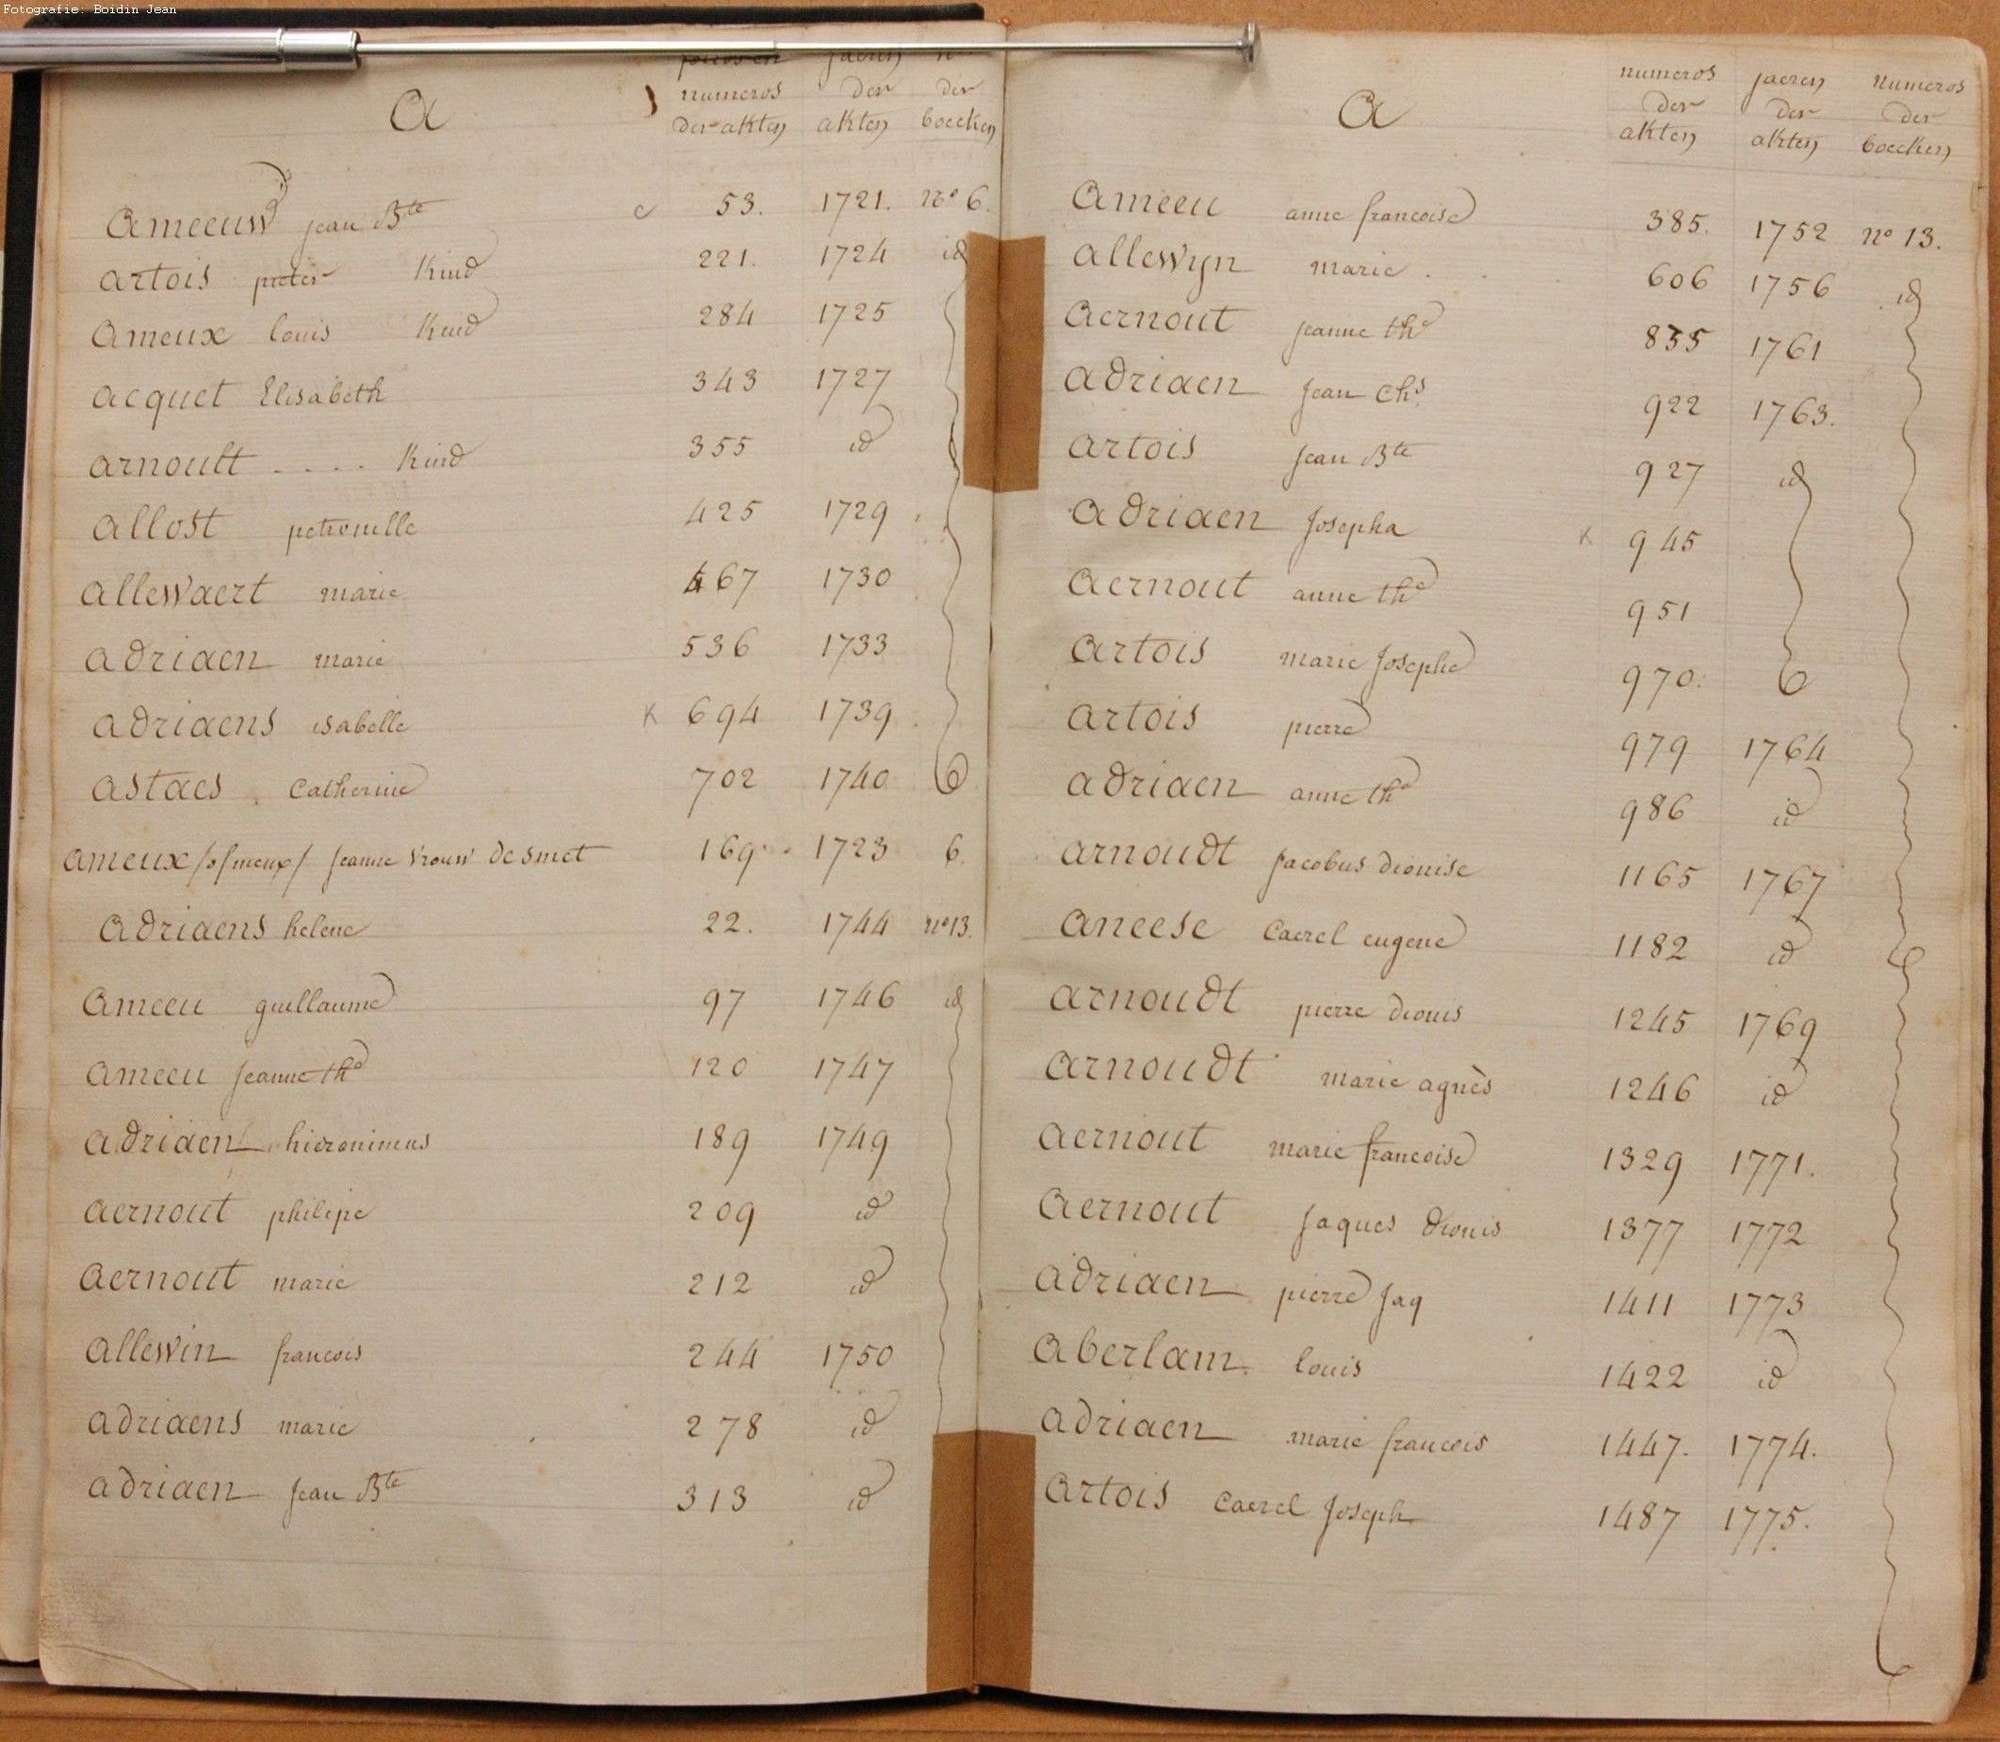 Fotografie: Boidin Jean
A
numeros der akten
jaeren der akten
der boecken
Ameeuw jean Bte 53. 1721. no 6.
artois pieter Kind 221. 1724 id
Ameux louis Kind 284 1725
acquet Elisabeth 343 1727
arnoult .... Kind 355 id
allost petronille 425 1729
allewaert marie 467 1730
adriaen marie 536 1733
adriaens isabelle K 694 1739
astaes Catherine 702 1740
ameux /of meux/ jeanne vrouw de smet 169 1723 6.
Adriaens helene 22. 1744 no 13.
Ameeu guillaume 97 1746 id
ameeu jeanne the 120 1747
adriaen hieronimus 189 1749
aernout philipe 209 id
aernout marie 212 id
allewin francois 244 1750
adriaens marie 278 id
adriaen jean Bte 313 id
A
numeros der akten
jaeren der akten
numeros der boecken
Ameeu anne francoise 385. 1752 no 13.
allewyn marie . . 606 1756 id
aernout jeanne the 835 1761
adriaen jean Chs. 922 1763.
artois jean Bte 927 id
adriaen josepha K 945
aernout anne the 951
artois marie josephe 970.
artois pierre 979 1764
adriaen anne the 986 id
arnoudt jacobus dionise 1165 1767
aneese Caerel eugene 1182 id
arnoudt pierre dionis 1245 1769
arnoudt marie agnès 1246 id
aernout marie francoise 1329 1771.
aernout jaques dionis 1377 1772
adriaen pierre jaq 1411 1773
aberlam. louis 1422 id
adriaen marie francois 1447. 1774.
artois Caerel joseph 1487 1775.